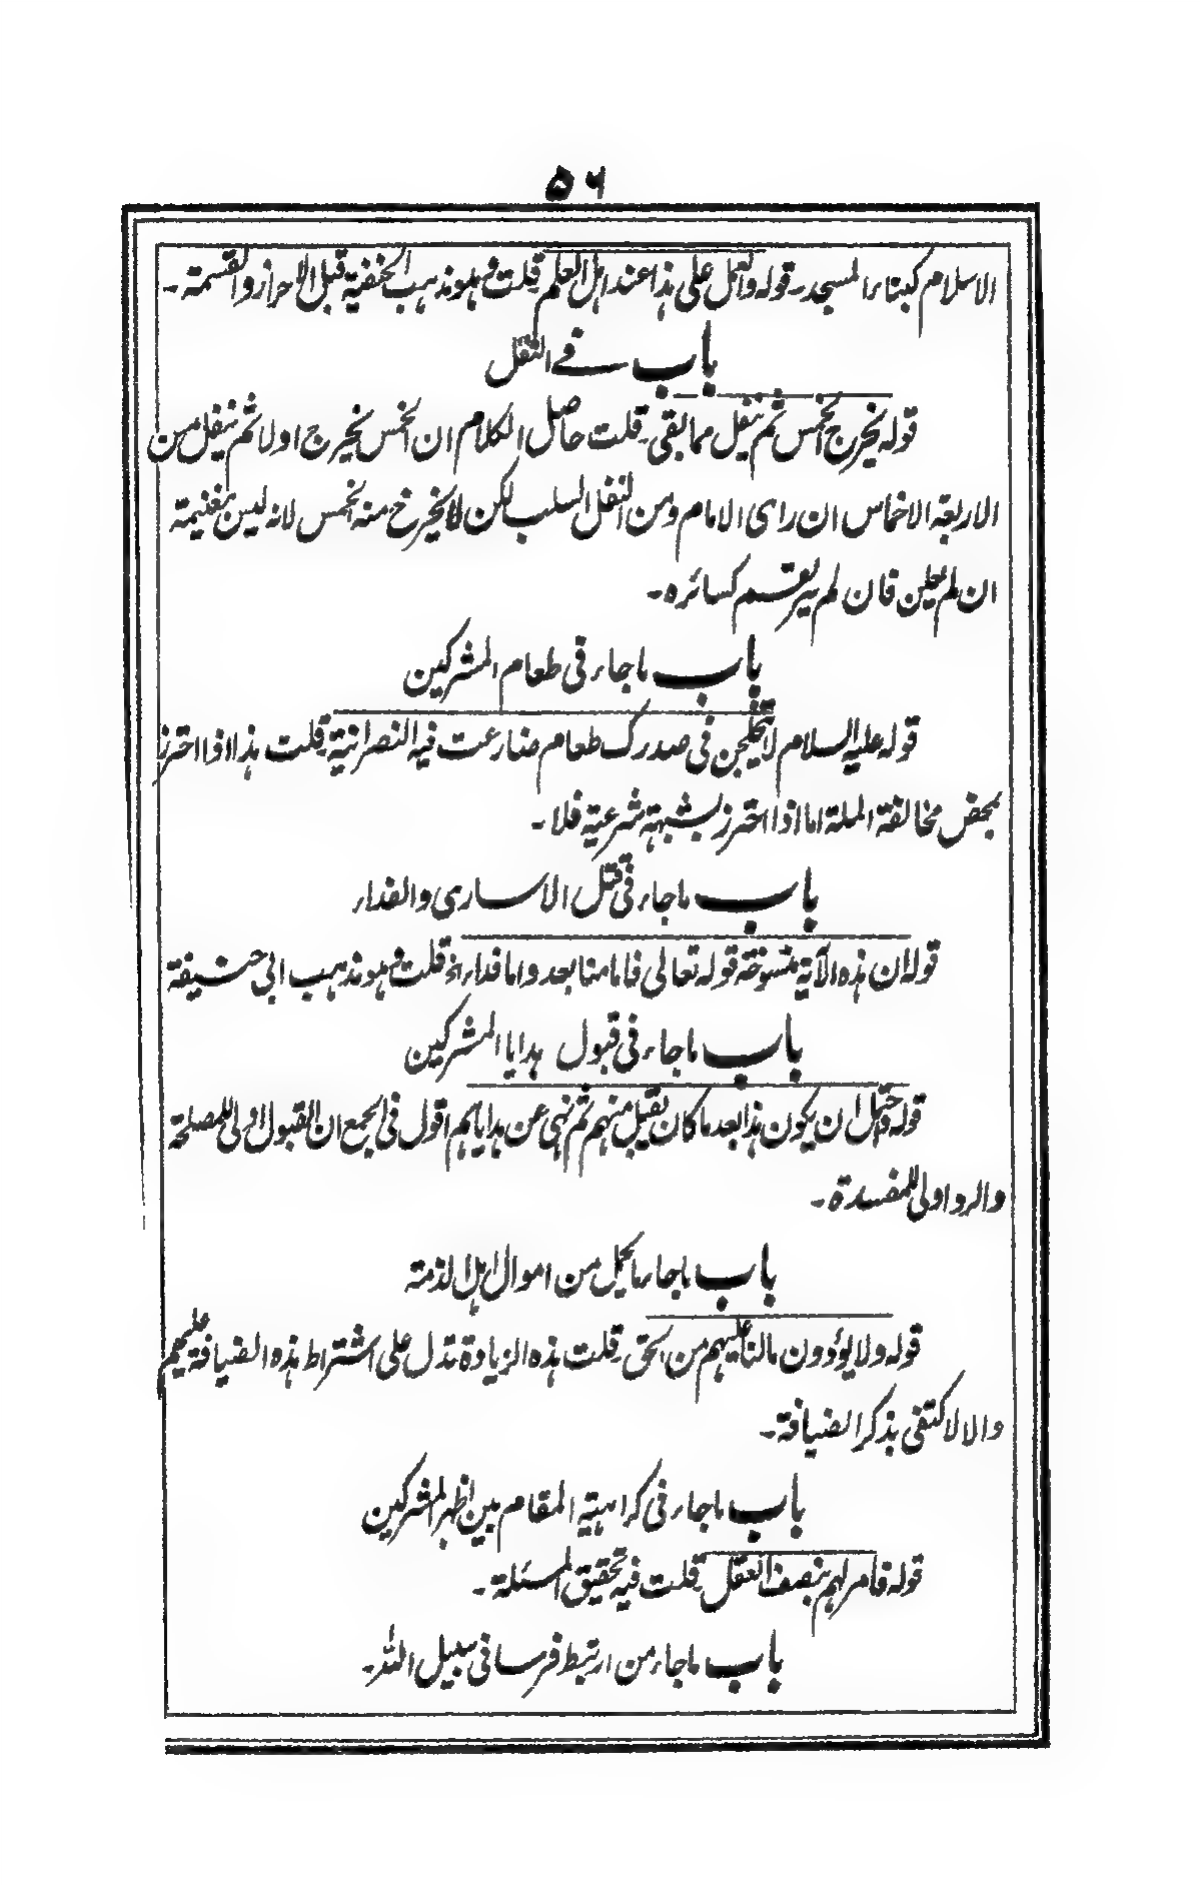 ٥٦
الاسلام كبناء المسجد۔ قوله والعمل على هذا عند اهل العلم قلت وهو مذهب الحنفية قبل الاحراز والقسمة۔
باب فے النفل
قوله يخرج الخمس ثم ينفل مما بقى۔ قلت حاصل الكلام ان الخمس يخرج اولا ثم ينفل من
الاربعة الاخماس ان راى الامام ومن النفل السلب لكن لا يخرج منه الخمس لانه ليس بغنيمة
ان لم يعلن فان لم ير يقسم كسائره۔
باب ما جاء فى طعام المشركين
قوله عليه السلام لا يتخلجن فى صدرك طعام ضارعت فيه النصرانية قلت هذا اذا احترز
بمحض مخالفة الملة اما اذا احترز بشبهة شرعية فلا۔
باب ما جاء فى قتل الاسارى والفداء
قوله ان هذه الآية منسوخة قوله تعالى فاما منا بعد واما فداء الخ قلت وهو مذهب ابى حنيفة
باب ما جاء فى قبول هدايا المشركين
قوله واحتمل ان يكون هذا بعد ما كان يقبل منهم ثم نهى عن هداياهم اقول فى الجمع ان القبول اولى للمصلحة
والرد اولى للمفسدة۔
باب ما جاء ما يحل من اموال اهل الذمة
قوله ولا يؤدون مالنا عليهم من الحق۔ قلت هذه الزيادة تدل على اشتراط هذه الضيافة عليهم
والا لاكتفى بذكر الضيافة۔
باب ما جاء فى كراهية المقام بين اظهر المشركين
قوله فامر لهم بنصف العقل قلت فيه تحقيق المسئلة۔
باب ما جاء من ارتبط فرسا فى سبيل الله۔